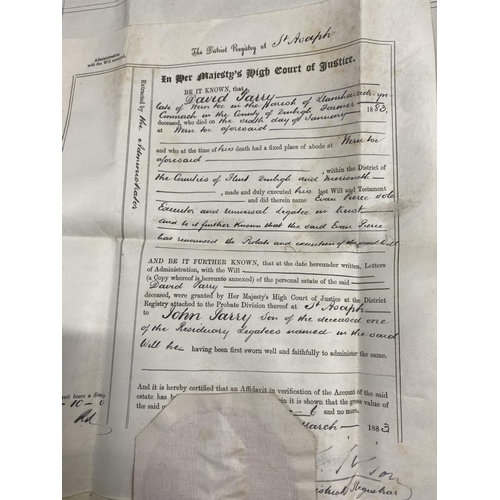 The District Registry at St Asaph
Administration with the Will annexed
In Her Majesty's High Court of Justice.
Extracted by the Administrator
BE IT KNOWN, that
David Parry
late of Wern toe in the Parish of Llanfhaiadr yn
Cinmerch in the County of Denbigh Farmer
deceased, who died on the sixth day of January 1883
at Wern toe aforesaid
and who at the time of his death had a fixed place of abode at Wern toe
aforesaid
, within the District of
the Counties of Flint Denbigh and Merioneth
, made and duly executed his last Will and Testament
and did therein name Evan Pierce sole
Executor and universal legatee in trust
And is it further Known that the said Evan Pierce
has renounced the Probate and execution of the said Will
AND BE IT FURTHER KNOWN, that at the date hereunder written, Letters
of Administration, with the Will
(a Copy whereof is hereunto annexed) of the personal estate of the said
David Parry
deceased, were granted by Her Majesty's High Court of Justice at the District
Registry attached to the Probate Division thereof at St Asaph
to John Parry Son of the deceased one
of the Residuary Legatees named in the said
Will he having been first sworn well and faithfully to administer the same.
And it is hereby certified that an Affidavit in verification of the Account of the said
estate has be it is shown that the gross value of
the said and no more.
March 1883
District Registrar
-10-0